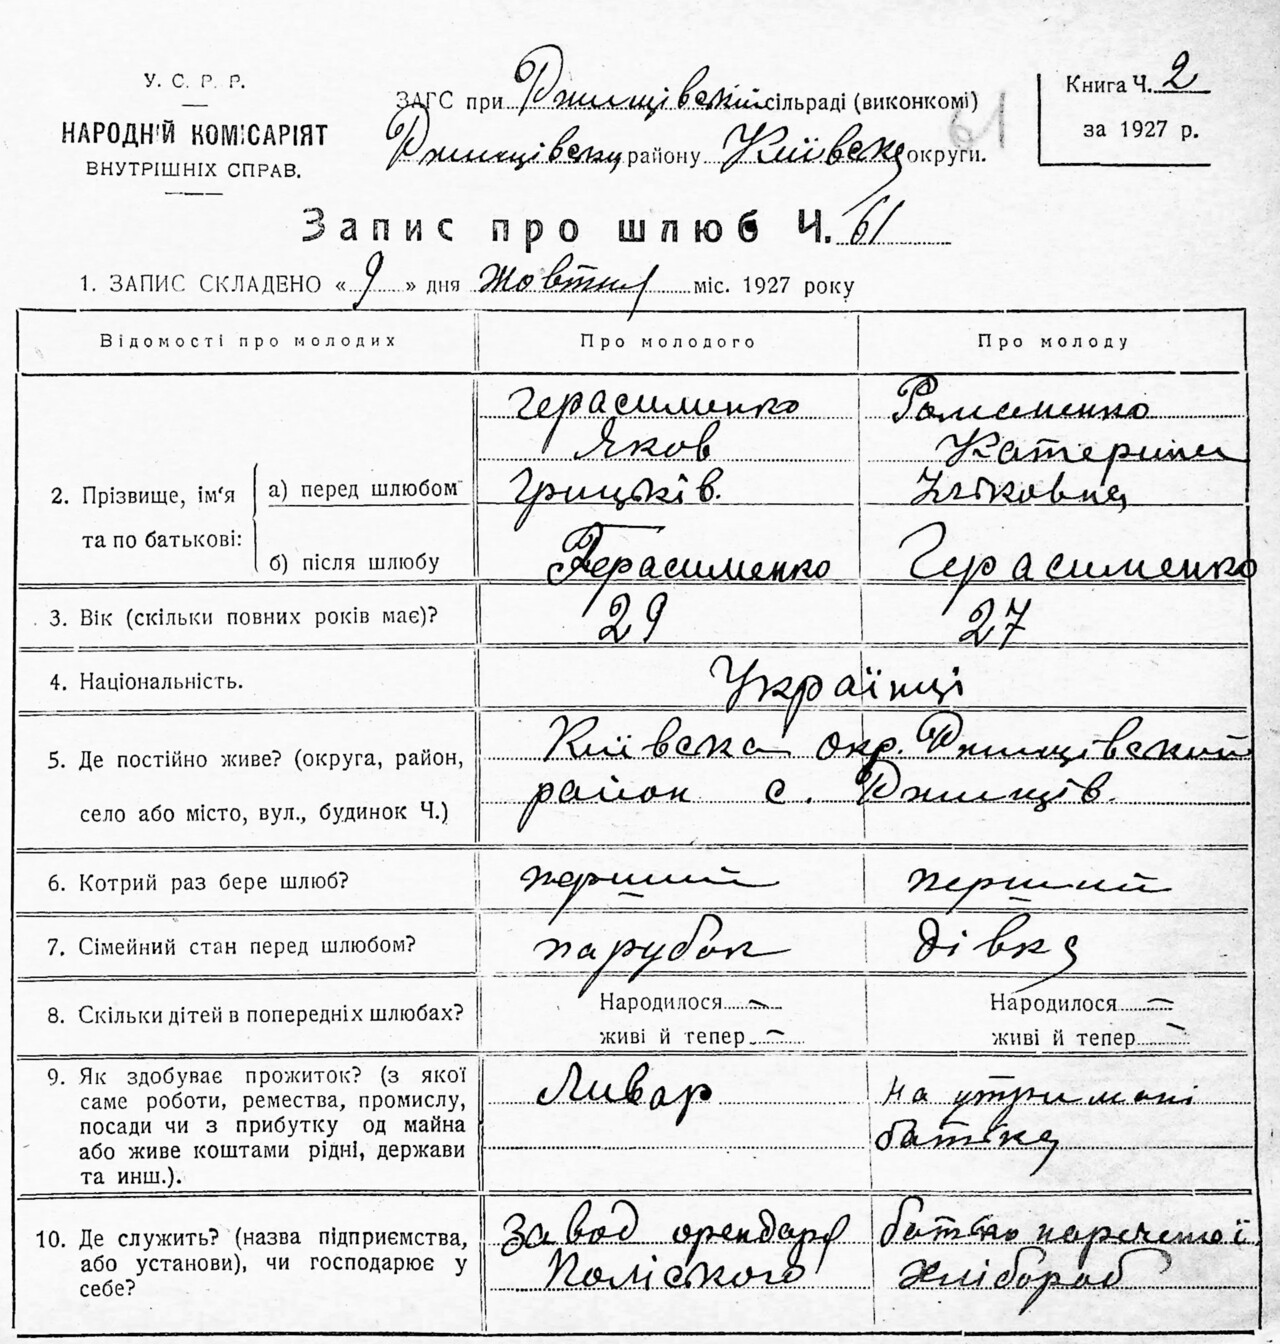 У. С. Р. Р.
НАРОДНІЙ КОМІСАРІЯТ
ВНУТРІШНІХ СПРАВ.
ЗАГС при Ржищівській сільраді (виконкомі)
Ржищівську району Київска округи.
Книга Ч. 2
за 1927 р.
61
Запис про шлюб Ч. 61
1. ЗАПИС СКЛАДЕНО « 9 » дня жовтня міс. 1927 року
Відомості про молодих Про молодого Про молоду
2. Прізвище, ім'я та по батькові:
а) перед шлюбом
Герасименко Романенко
Яков Катерина
Грицьків. Яковна
б) після шлюбу Герасименко Герасименко
3. Вік (скільки повних років має)? 29 27
4. Національність. Українці
5. Де постійно живе? (округа, район, Київска окр. Ржищівский
село або місто, вул., будинок Ч.) район с. Ржищів.
6. Котрий раз бере шлюб? перший перший
7. Сімейний стан перед шлюбом? парубок дівка
8. Скільки дітей в попередніх шлюбах?
Народилося — Народилося —
живі й тепер — живі й тепер —
9. Як здобуває прожиток? (з якої
саме роботи, ремества, промислу,
посади чи з прибутку од майна
або живе коштами рідні, держави
та инш.).
Ливар на утримані
батька
10. Де служить? (назва підприємства,
або установи), чи господарює у
себе?
завод орендаря батько нареченої
Поліского хлібороб